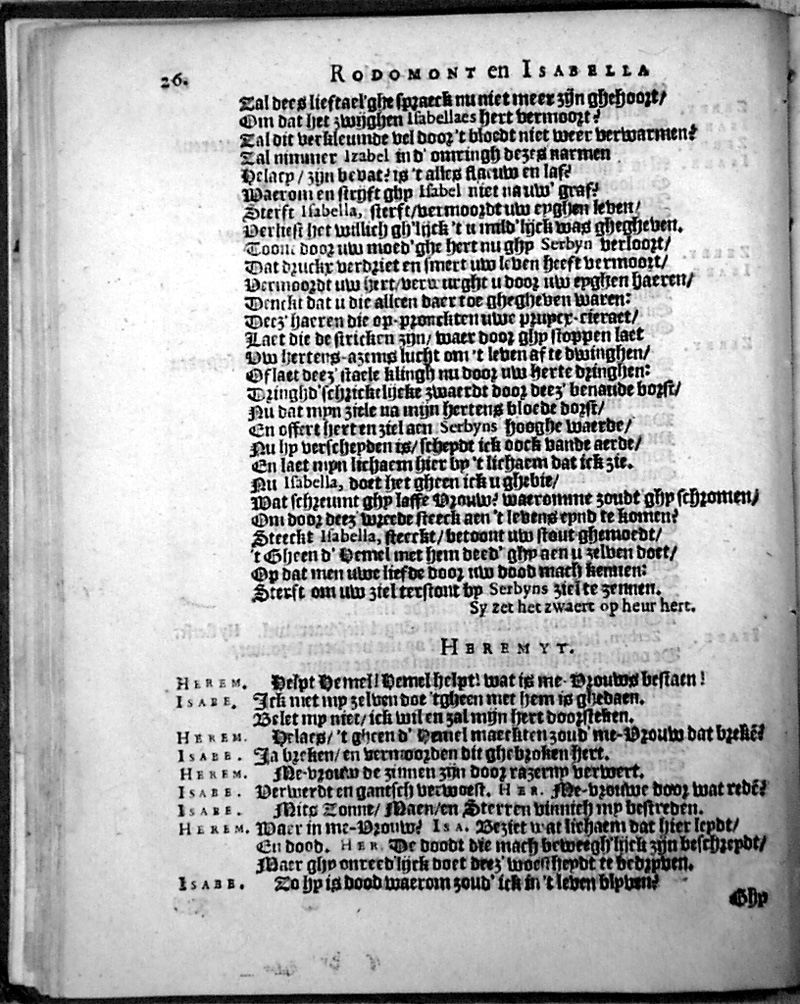 26. RODOMONT en ISABELLA
Zal dees lieftael'ghe spraeck nu niet meer zijn ghehoort/
Om dat het zwijghen Isabellaes hert vermoort?
Zal dit verkleumde vel door 't bloedt niet weer verwarmen?
Zal nimmer Izabel in d' omringh dezes narmen
Helacy/ zijn bevat? is 't alles flauw en laf?
Waerom en strijft ghy Isabel niet na uw' graf?
Sterft Isabella, sterft/ vermoordt uw eyghen leven/
Verliest het willich gh'lijck 't u mild'lijck was ghegheven.
Toont door uw moed'ghe hert nu ghy Serbyn verloort/
Dat druckx verdriet en smert uw leven heeft vermoort/
Vermoordt uw hert/ verwurght u door uw eyghen haeren/
Denckt dat u die alleen daer toe ghegheven waren:
Deez' haeren die op-pronckten uwe pruyck-cieraet/
Laet die de stricken zijn/ waer door ghy stoppen laet
Uw hertens-azems lucht om 't leven af te dwinghen/
Of laet deez' staele klingh nu door uw herte dringhen:
Dringhd' schrickelijcke zwaerdt door deez' benaude borst/
Nu dat mijn ziele na mijn hertens bloede dorst/
En offert hert en ziel aen Serbyns hooghe waerde/
Nu hy verscheyden is/ scheydt ick oock vande aerde/
En laet mijn lichaem hier by 't lichaem dat ick zie.
Nu Isabella, doet het gheen ick u ghebie/
Wat schreumt ghy laffe Vrouw? waeromme zoudt ghy schromen/
Om door deez' wreede steeck aen 't levens eynd te komen?
Steeckt Isabella, steeckt/ betoont uw stout ghemoedt/
't Gheen d' Hemel met hem deed' ghy aen u zelven doet/
Op dat men uwe liefde door uw dood mach kennen:
Sterft om uw ziel terstont by Serbyns ziel te zennen.
Sy zet het zwaert op heur hert.
HEREMYT.
HEREM. Helpt Hemel! Hemel helpt! wat is me-Vrouws bestaen!
ISABE. Ick met my zelven doe 'tgheen met hem is ghedaen.
Belet my niet/ ick wil en zal mijn hert doorsteken.
HEREM. Helaes/ 't gheen d' Hemel maeckten zoud' me-Vrouw dat brekē?
ISABE. Ja breken/ en vermoorden dit ghebroken hert.
HEREM. Me-vrouw de zinnen zijn door razerny verwert.
ISABE. Verwerdt en gantsch verwoest. HER. Me-vrouwe door wat redē?
ISABE. Mits Zonne/ Maen/ en Sterren vinnich my bestreden.
HEREM. Waer in me-Vrouw? ISA. Beziet wat lichaem dat hier leydt/
En dood. HER. De doodt die mach beweegh'lijck zijn beschreydt/
Maer ghy onreed'lijck doet deez' woestheydt te bedryven.
ISABE. Zo hy is dood waerom zoud' ick in 't leven blyven?
Ghy